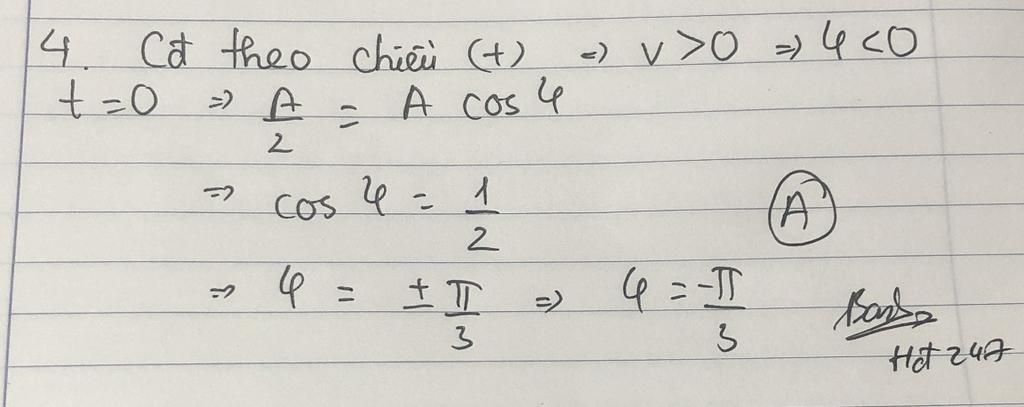 4. Cđ theo chiều (+) => v > 0 => φ < 0
t = 0 => A/2 = A cos φ
=> cos φ = 1/2
A
=> φ = ± π/3 => φ = -π/3